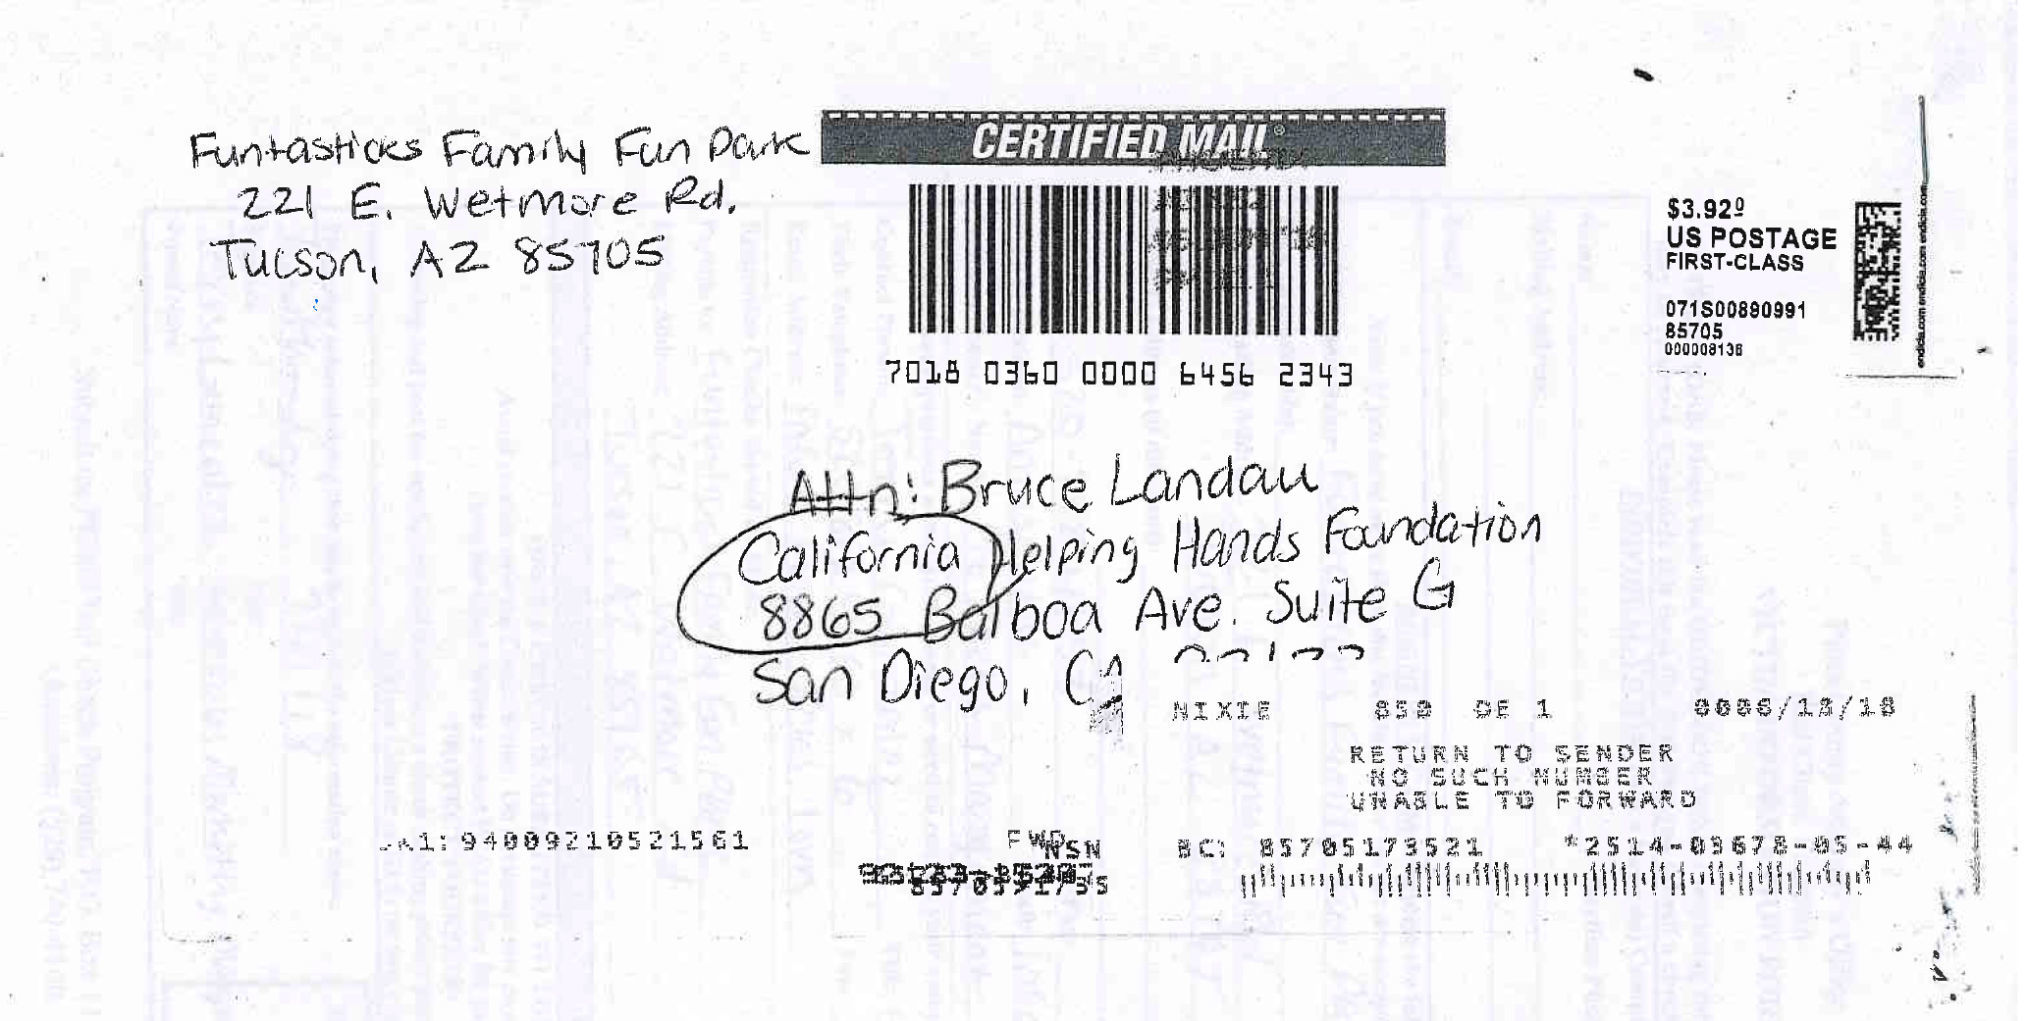 Funtasticks Family Fun Park
221 E. Wetmore Rd.
Tucson, AZ 85705
CERTIFIED MAIL®
7018 0360 0000 6456 2343
$3.92⁰
US POSTAGE
FIRST-CLASS
071S00890991
85705
000008136
endicia.com endicia.com endicia.com
Attn: Bruce Landau
California Helping Hands Foundation
8865 Balboa Ave. Suite G
San Diego, CA
NIXIE 850 DE 1 0006/13/18
RETURN TO SENDER
NO SUCH NUMBER
UNABLE TO FORWARD
94009210521561
FWD
NSN
BC: 85705173521 *2514-03678-05-44